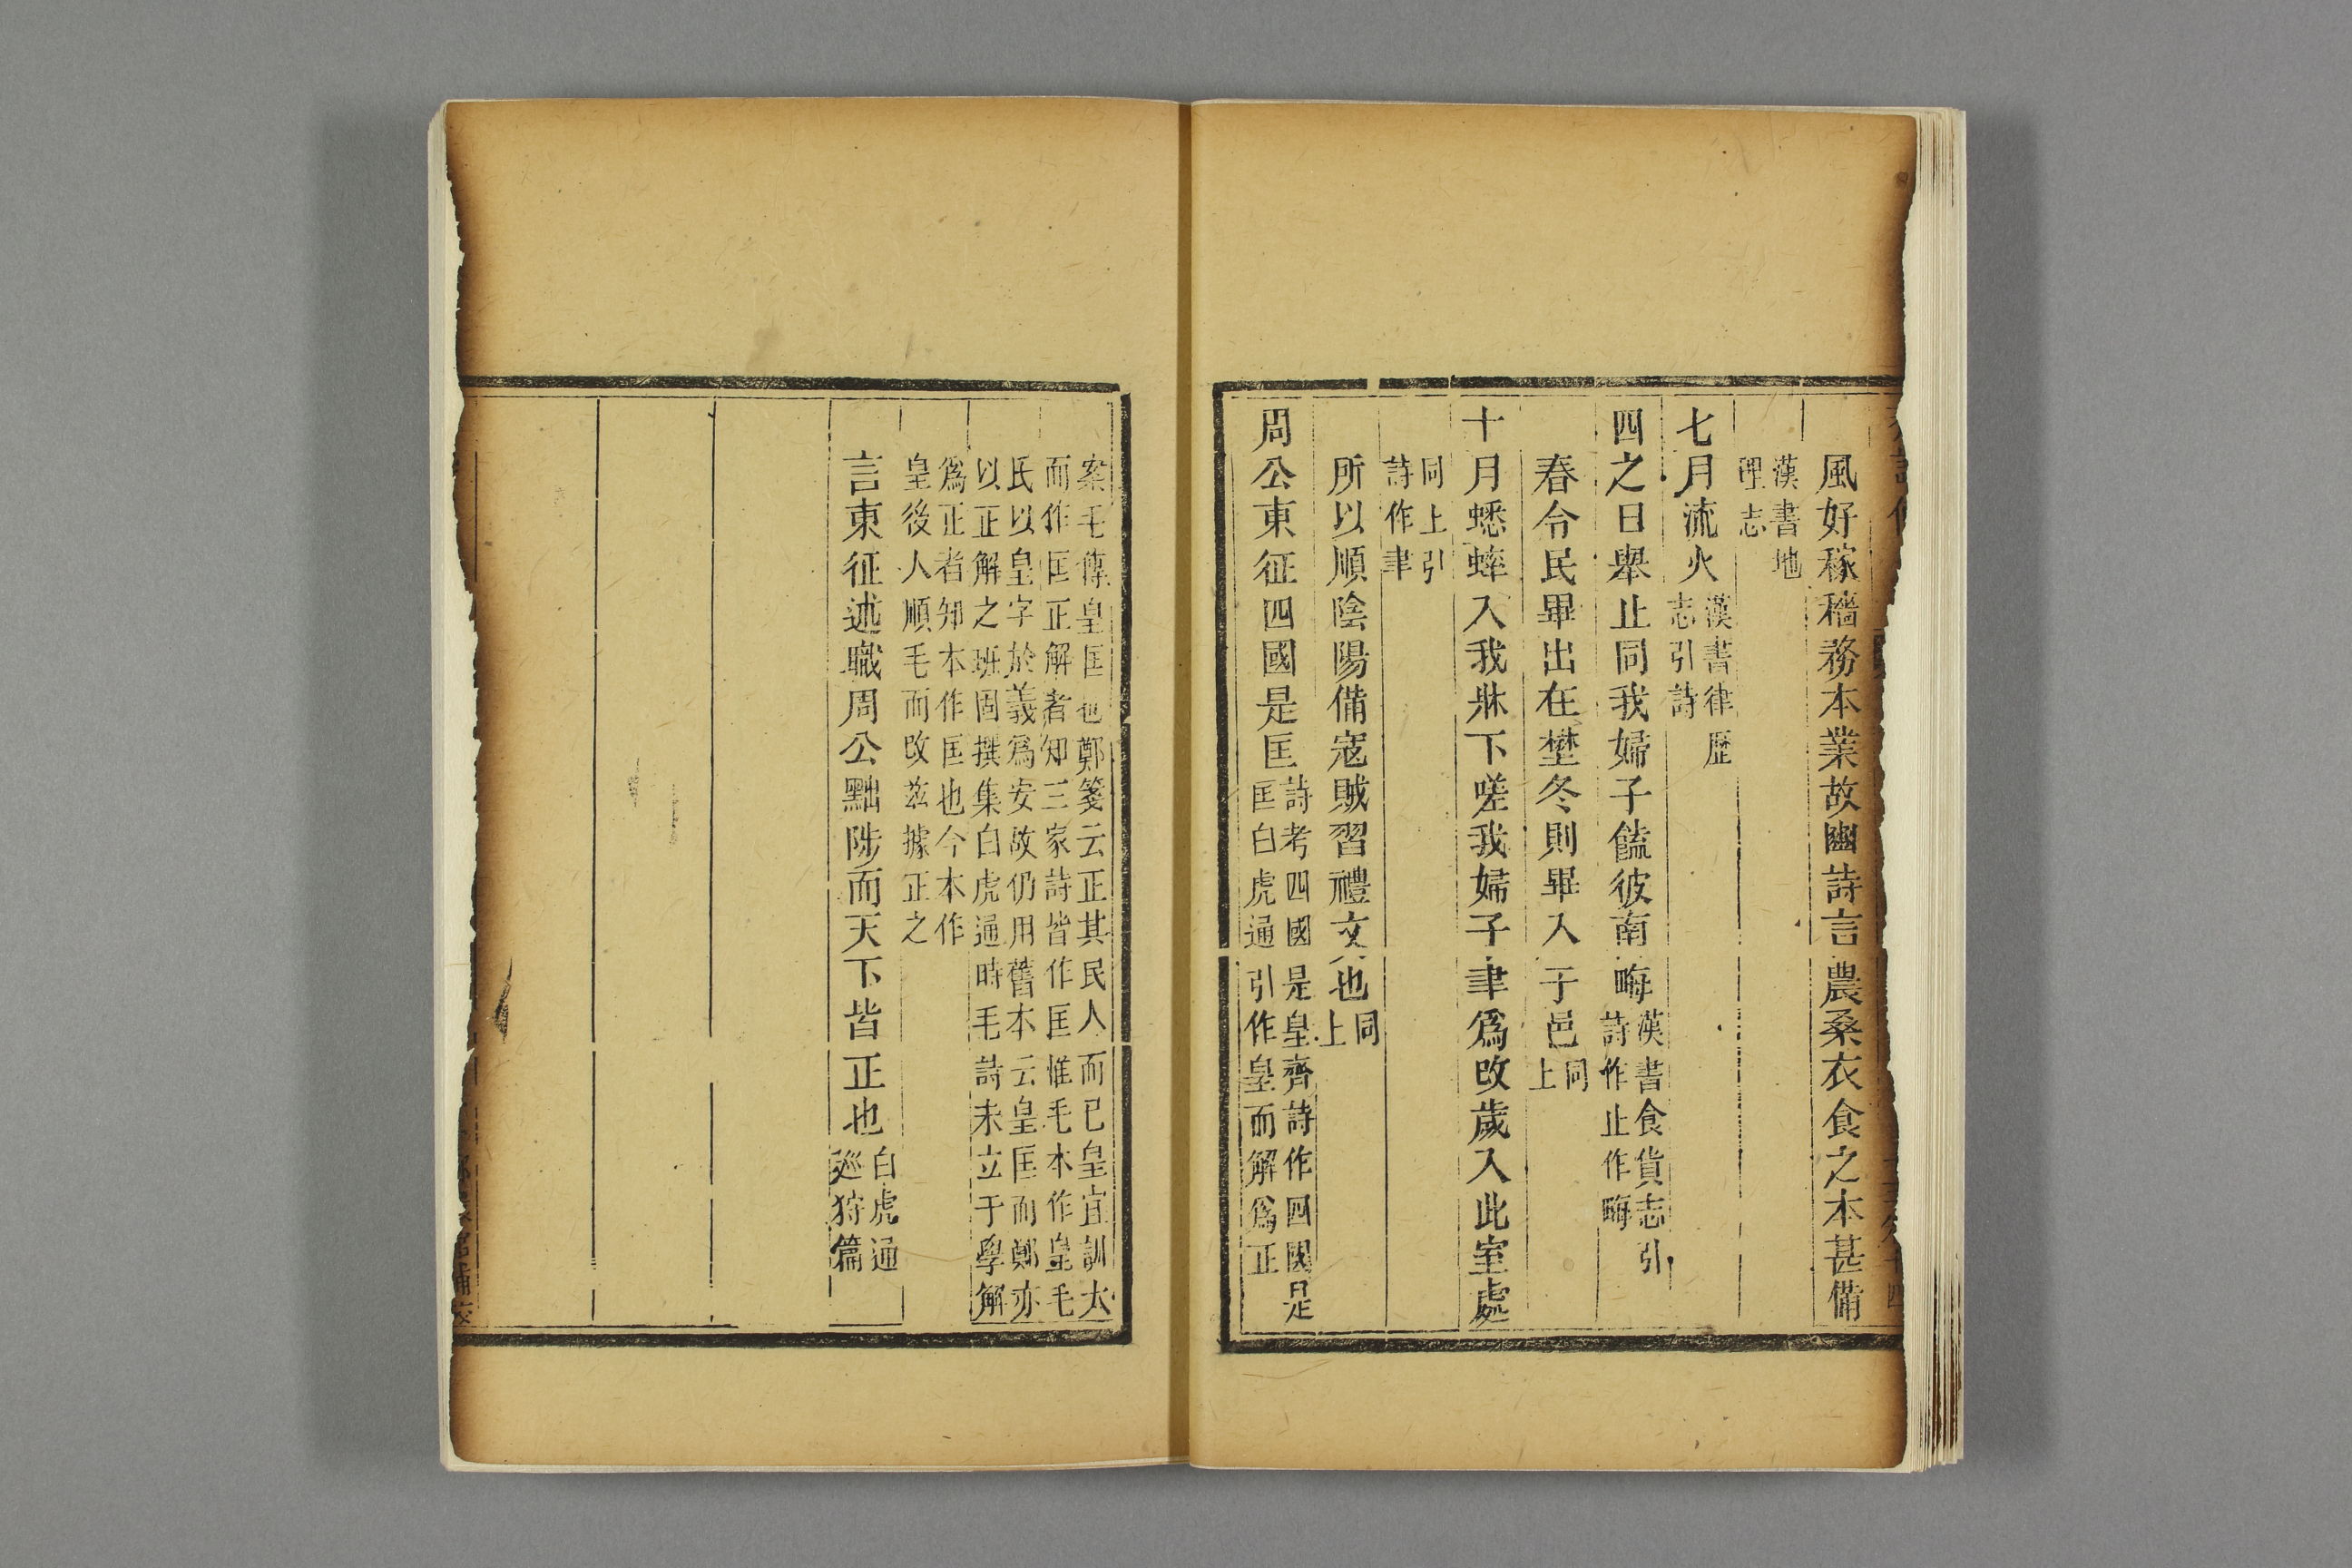 風好稼穡務本業故豳詩言農桑衣食之本甚備
漢書地
理志
七月流火漢書律歷
志引詩
四之日舉止同我婦子饁彼南畮漢書食貨志引
詩作止作畮
春令民畢出在壄冬則畢入于邑同
上
十月蟋蟀入我牀下嗟我婦子聿爲改歲入此室處
同上引
詩作聿
所以順陰陽備寇賊習禮文也同
上
周公東征四國是匡詩考四國是皇齊詩作四國是
匡白虎通引作皇而解爲正
案毛傳皇匡也鄭箋云正其民人而已皇宜訓大
而作匡正解者知三家詩皆作匡惟毛本作皇毛
氏以皇字於義爲安故仍用舊本云皇匡而鄭亦
以正解之班固撰集白虎通時毛詩未立于學解
爲正者知本作匡也今本作
皇後人順毛而改茲據正之
言東征述職周公黜陟而天下皆正也白虎通
巡狩篇